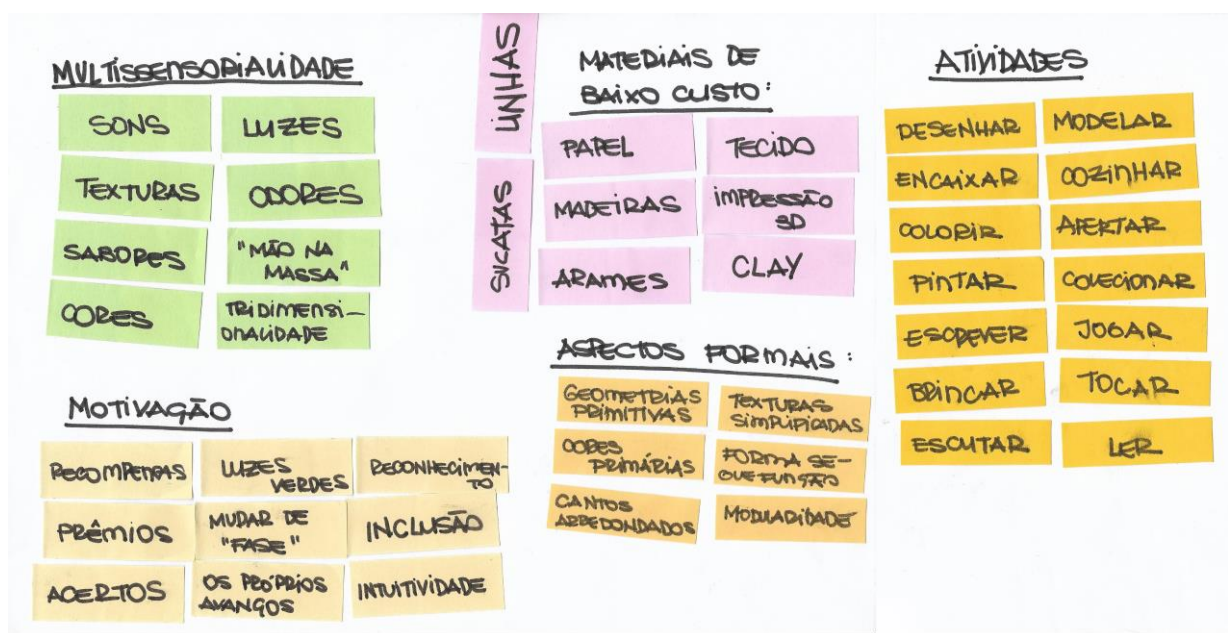 MULTISSENSORIALIDADE
SONS
LUZES
TEXTURAS
ODORES
SABORES
"MÃO NA
MASSA"
CORES
TRIDIMENSI-
ONALIDADE
MOTIVAÇÃO
RECOMPENSAS
LUZES
VERDES
RECONHECIMEN-
TO
PRÊMIOS
MUDAR DE
"FASE"
INCLUSÃO
ACERTOS
OS PRÓPRIOS
AVANÇOS
INTUITIVIDADE
LINHAS
SUCATAS
MATERIAIS DE
BAIXO CUSTO:
PAPEL
TECIDO
MADEIRAS
IMPRESSÃO
3D
ARAMES
CLAY
ASPECTOS FORMAIS:
GEOMETRIAS
PRIMITIVAS
TEXTURAS
SIMPLIFICADAS
CORES
PRIMÁRIAS
FORMA SE-
GUE FUNÇÃO
CANTOS
ARREDONDADOS
MODULARIDADE
ATIVIDADES
DESENHAR
MODELAR
ENCAIXAR
COZINHAR
COLORIR
APERTAR
PINTAR
COLECIONAR
ESCREVER
JOGAR
BRINCAR
TOCAR
ESCUTAR
LER